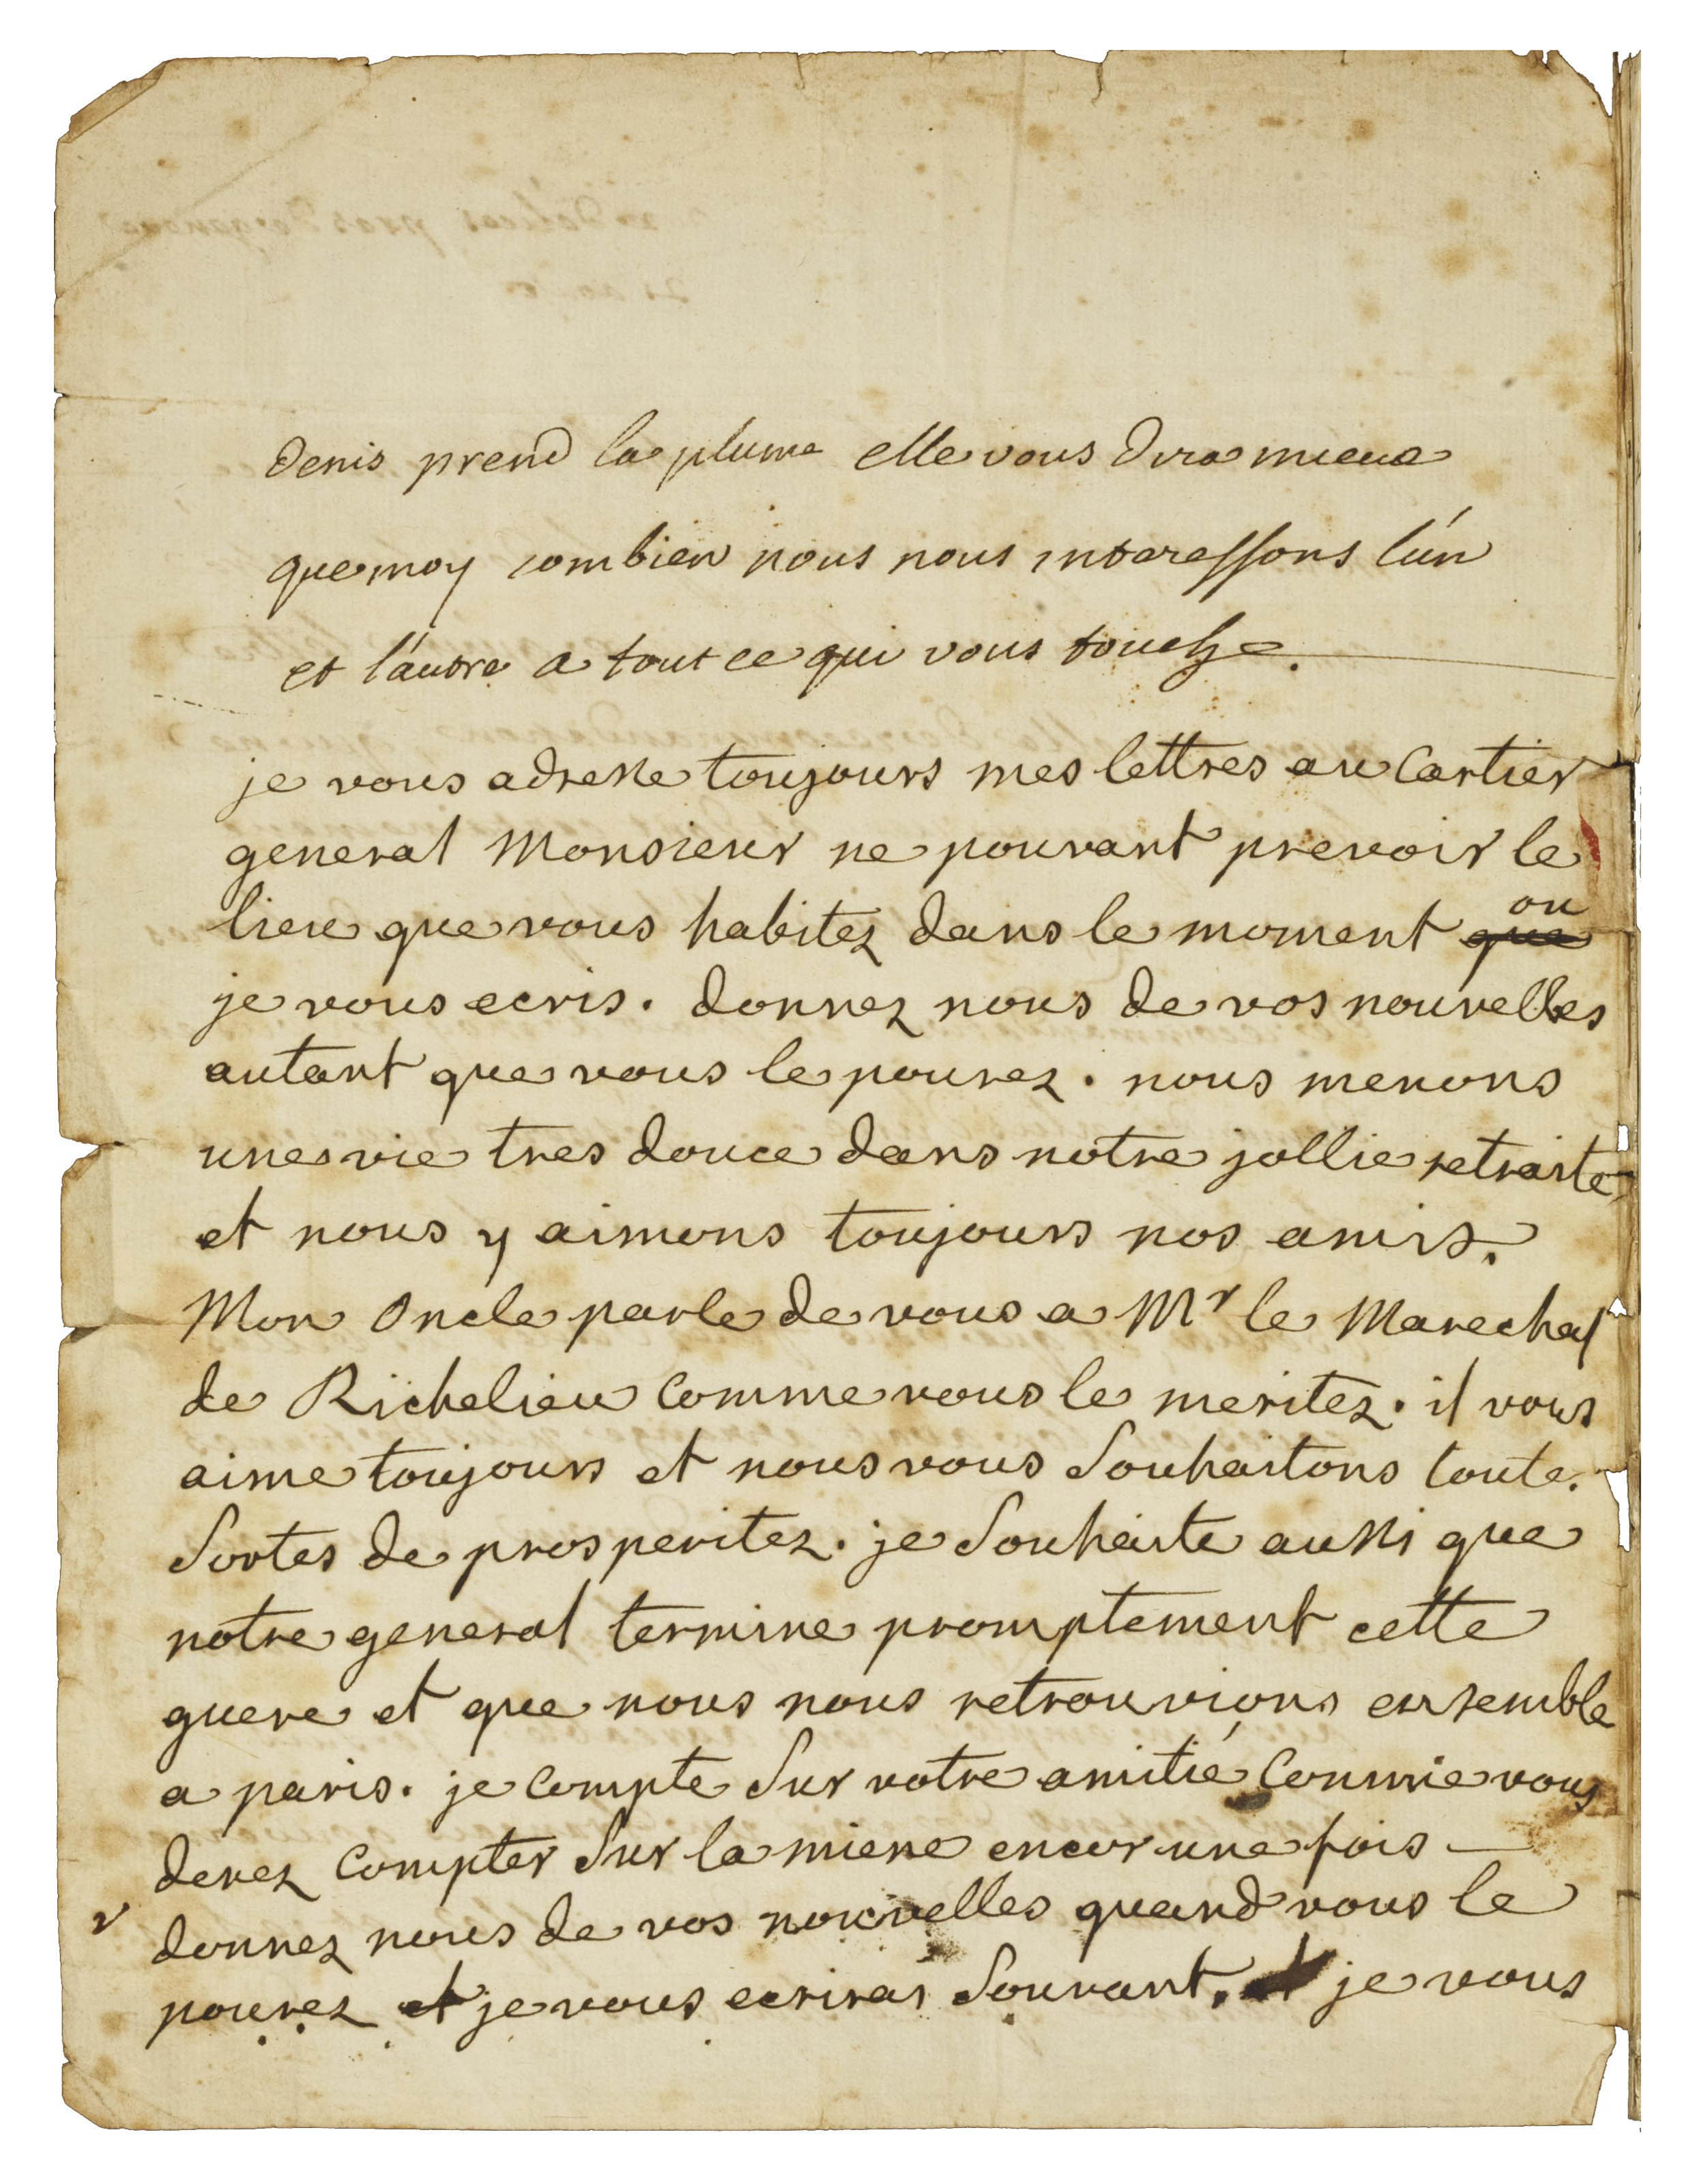 denis prend la plume elle vous dira mieux
que moy combien nous nous interessons l'un
et l'autre a tout ce qui vous touche.
je vous adresse toujours mes lettres au Cartier
general Monsieur ne pouvant prevoir le
lieu que vous habitez dans le moment ou
je vous ecris. donnez nous de vos nouvelles
autant que vous le pourez. nous menons
une vie tres douce dans notre jollie retraite
et nous y aimons toujours nos amis.
Mon Oncle parle de vous a Mr le Marechal
de Richelieu Comme vous le meritez. il vous
aime toujours et nous vous Souhaitons toute.
Sortes de prosperitez. je Souhaite aussi que
notre general termine promptement cette
guere et que nous nous retrouvions ensemble
a paris. je Compte Sur votre amitié Comme vous
devez Compter Sur la miene encor une fois
donnez nous de vos nouvelles quand vous le
pourez et je vous ecrirai Souvant. je vous